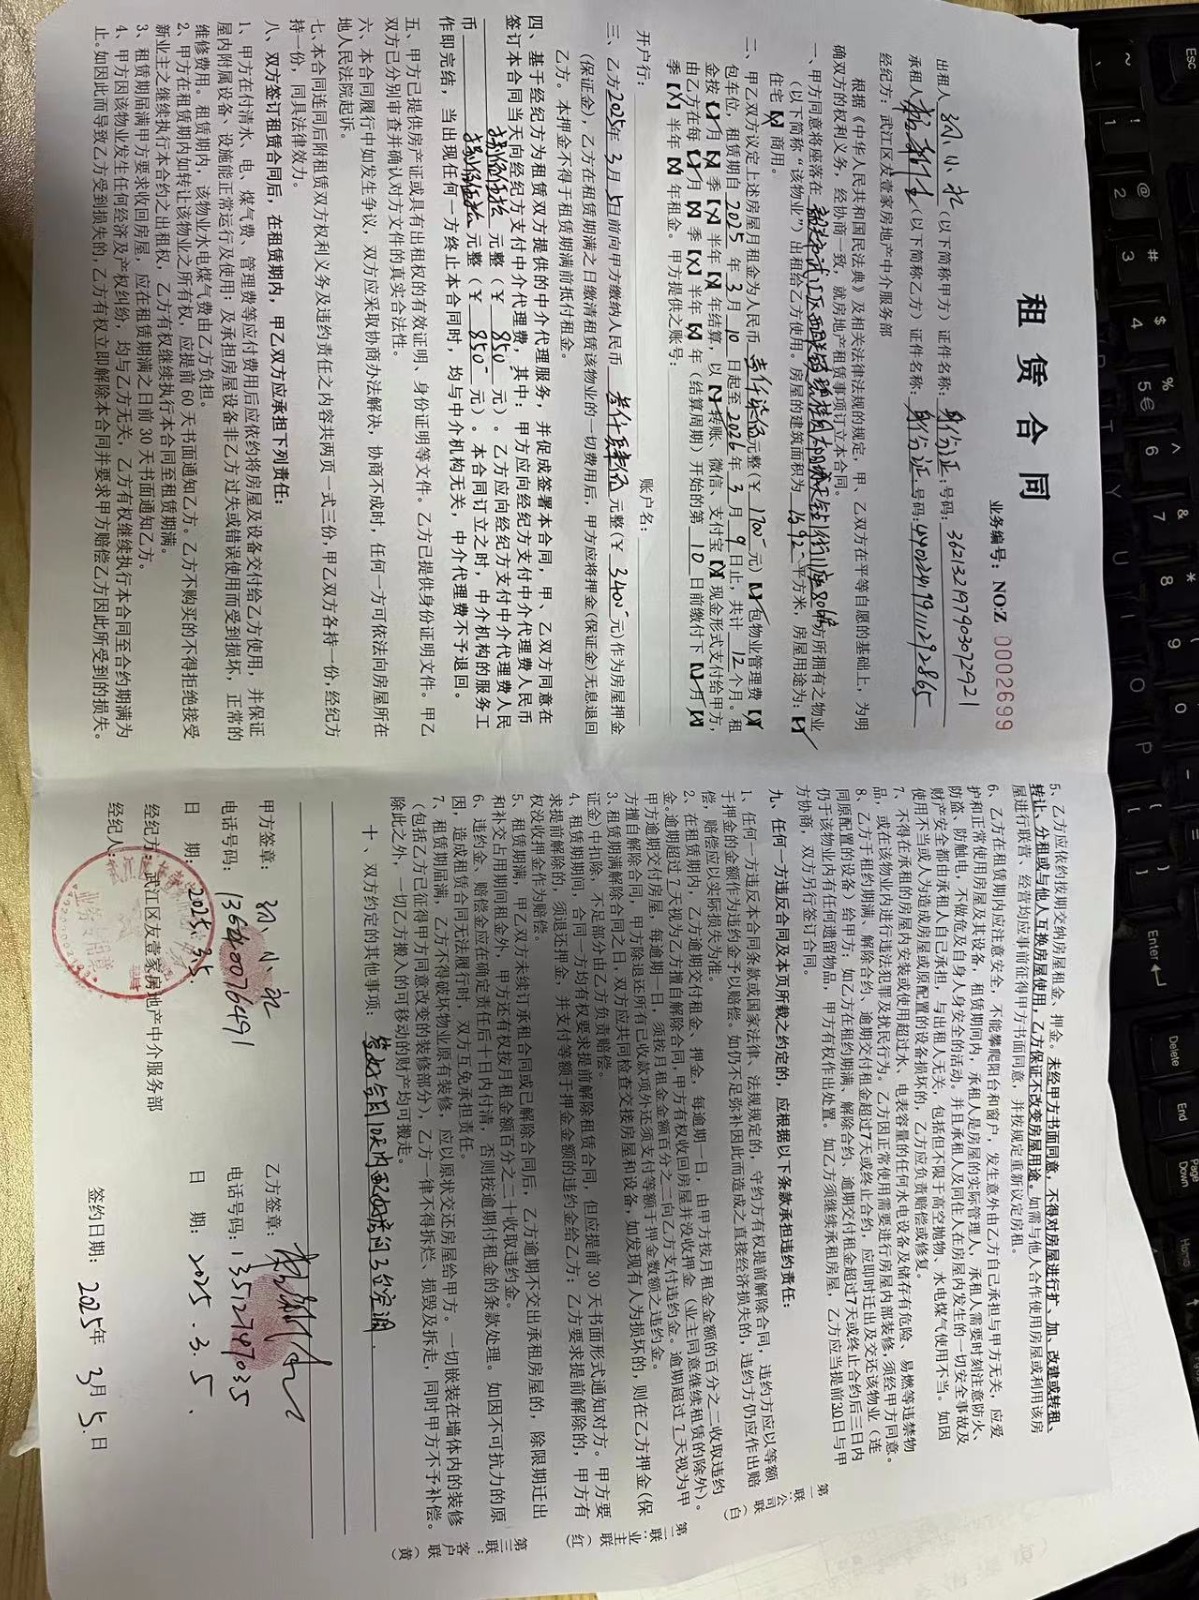 租 赁 合 同
业务编号：NO:Z 0002699
出租人 （以下简称甲方）证件名称：身份证；号码：362132197903072921
承租人 （以下简称乙方）证件名称：身份证 号码：440224197111292865
经纪方：武江区友壹家房地产中介服务部
根据《中华人民共和国民法典》及相关法律法规的规定，甲、乙双方在平等自愿的基础上，为明
确双方的权利义务，经协商一致，就房地产租赁事项订立本合同。
一、甲方同意将座落在 方所拥有之物业
（以下简称“该物业”）出租给乙方使用。房屋的建筑面积为 平方米，房屋用途为：
住宅 商用。
二、甲乙双方议定上述房屋月租金为人民币 壹仟柒佰 元整（￥ 1700 元） 包物业管理费
包车位，租赁期自 2025 年 3 月 10 日起至 2026 年 3 月 9 日止，共计 12 个月。租
金按 月 季 半年 年结算，以 转账、微信、支付宝 现金形式支付给甲方，
由乙方在每 月 季 半年 年（结算周期）开始的第 10 日前缴付下 月
季 半年 年租金。甲方提供之账号：
开户行： 账户名：
三、乙方 2025年3月5日前向甲方缴纳人民币 叁仟肆佰 元整（￥ 3400 元）作为房屋押金
（保证金），乙方在租赁期满之日缴清租赁该物业的一切费用后，甲方应将押金（保证金）无息退回
乙方。本押金不得于租赁期满前抵付租金。
四、基于经纪方为租赁双方提供的中介代理服务，并促成签署本合同，甲、乙双方同意在
签订本合同当天向经纪方支付中介代理费，其中：甲方应向经纪方支付中介代理费人民币
捌佰伍拾 元整（￥ 850 元）。乙方应向经纪方支付中介代理费人民
币 捌佰伍拾 元整（￥ 850 元）。本合同订立之时，中介机构的服务工
作即完结，当出现任何一方终止本合同时，均与中介机构无关，中介代理费不予退回。
五、甲方已提供房产证或具有出租权的有效证明、身份证明等文件。乙方已提供身份证明文件。甲乙
双方已分别审查并确认对方文件的真实合法性。
六、本合同履行中如发生争议，双方应采取协商办法解决，协商不成时，任何一方可依法向房屋所在
地人民法院起诉。
七、本合同连同后附租赁双方权利义务及违约责任之内容共两页一式三份，甲乙双方各持一份，经纪方
持一份，同具法律效力。
八、双方签订租赁合同后，在租赁期内，甲乙双方应承担下列责任：
1、甲方在付清水、电、煤气费、管理费等应付费用后应依约将房屋及设备交付给乙方使用，并保证
屋内附属设备、设施能正常运行及使用；及承担房屋设备非乙方过失或错误使用而受到损坏，正常的
维修费用。租赁期内，该物业水电煤气费由乙方负担。
2、甲方在租赁期内如转让该物业之所有权，应提前 60 天书面通知乙方。乙方不购买的不得拒绝接受
新业主之继续执行本合约之出租权，乙方有权继续执行本合同至租赁期满。
3、租赁期届满甲方要求收回房屋，应在租赁期满之日前 30 天书面通知乙方。
4、甲方因该物业发生任何经济及产权纠纷，均与乙方无关，乙方有权继续执行本合同至合约期满为
止。如因此而导致乙方受到损失的，乙方有权立即解除本合同并要求甲方赔偿乙方因此所受到的损失。
5、乙方应依约按期交纳房屋租金、押金。未经甲方书面同意，不得对房屋进行扩、加、改建或转租、
转让、分租或与他人互换房屋使用，乙方保证不改变房屋用途。如需与他人合作使用房屋或利用该房
屋进行联营、经营均应事前征得甲方书面同意，并按规定重新议定房租。
6、乙方在租赁期内应注意安全，不能攀爬阳台和窗户，发生意外由乙方自己承担与甲方无关，应爱
护和正常使用房屋及其设备，租赁期间内，承租人是房屋的实际管理人，承租人需要时刻注意防火、
防盗、防触电，不做危及自身人身安全的活动。并且承租人及同住人在房屋内发生的一切安全事故及
财产安全都由承租人自己承担，与出租人无关，包括但不限于高空抛物、水电煤气使用不当。如因
使用不当或人为造成房屋或原配置的设备损坏的，乙方应负责赔偿或修复。
7、不得在承租的房屋内安装或使用超过水、电表容量的任何水电设备及储存有危险、易燃等违禁物
品，或在该物业内进行违法犯罪及扰民行为。乙方因正常使用需要进行房屋内部装修，须经甲方同意。
8、乙方于租约期满、解除合约、逾期交付租金超过7天或终止合约，应即时迁出及交还该物业（连
同原配置的设备）给甲方；如乙方在租约期满，解除合约、逾期交付租金超过7天或终止合约后三日内
仍于该物业内有任何遗留物品，甲方有权作出处置。如乙方须继续承租房屋，乙方应当提前30日与甲
方协商，双方另行签订合同。
九、任何一方违反合同及本页所载之约定的，应根据以下条款承担违约责任：
1、任何一方违反本合同条款或国家法律、法规规定的，守约方有权提前解除合同，违约方应以等额
于押金的金额作为违约金予以赔偿。如仍不足弥补因此而造成之直接经济损失的，违约方仍应作出赔
偿，赔偿应以实际损失为准。
2、在租赁期内，乙方逾期交付租金、押金，每逾期一日，由甲方按月租金金额的百分之二收取违约
金。逾期超过 7 天视为乙方擅自解除合同，甲方有权收回房屋并没收押金（业主同意继续租赁的除外）。
甲方逾期交付房屋，每逾期一日，须按月租金金额百分之二向乙方支付违约金。逾期超过 7 天视为甲
方擅自解除合同，甲方除退还所有已收款项外还须支付等额于押金数额之违约金。
3、租赁期满解除合同之日，双方应共同检查交接房屋和设备，如发现有人为损坏的，则在乙方押金（保
证金）中扣除，不足部分由乙方负责赔偿。
4、租赁期期间，合同一方均有权要求提前解除租赁合同，但应提前 30 天书面形式通知对方。甲方要
求提前解除的，须退还押金，并支付等额于押金金额的违约金给乙方；乙方要求提前解除的，甲方有
权没收押金作为赔偿。
5、租赁期满，甲乙双方未续订承租合同或已解除合同后，乙方逾期不交出承租房屋的，除限期迁出
和补交占用期间租金外，甲方还有权按月租金额百分之二十收取违约金。
6、违约金、赔偿金应在确定责任后十日内付清，否则按逾期付租金的条款处理。如因不可抗力的原
因，造成租赁合同无法履行时，双方互免承担责任。
7、租赁期届满，乙方不得破坏物业原有装修，应以原状交还房屋给甲方。一切嵌装在墙体内的装修
（包括乙方已征得甲方同意改变的装修部分），乙方一律不得拆烂、损毁及拆走，同时甲方不予补偿。
除此之外，一切乙方搬入的可移动的财产均可搬走。
十、双方约定的其他事项：
甲方签章： 乙方签章：
电话号码：13640076491 电话号码：1352747035
日 期：2025.3.5. 日 期：2025.3.5.
经纪方：武江区友壹家房地产中介服务部
经纪人： 签约日期：2025年3月5日
业务专用章
第一联：公司联（白）
第二联：业主联（红）
第三联：客户联（黄）